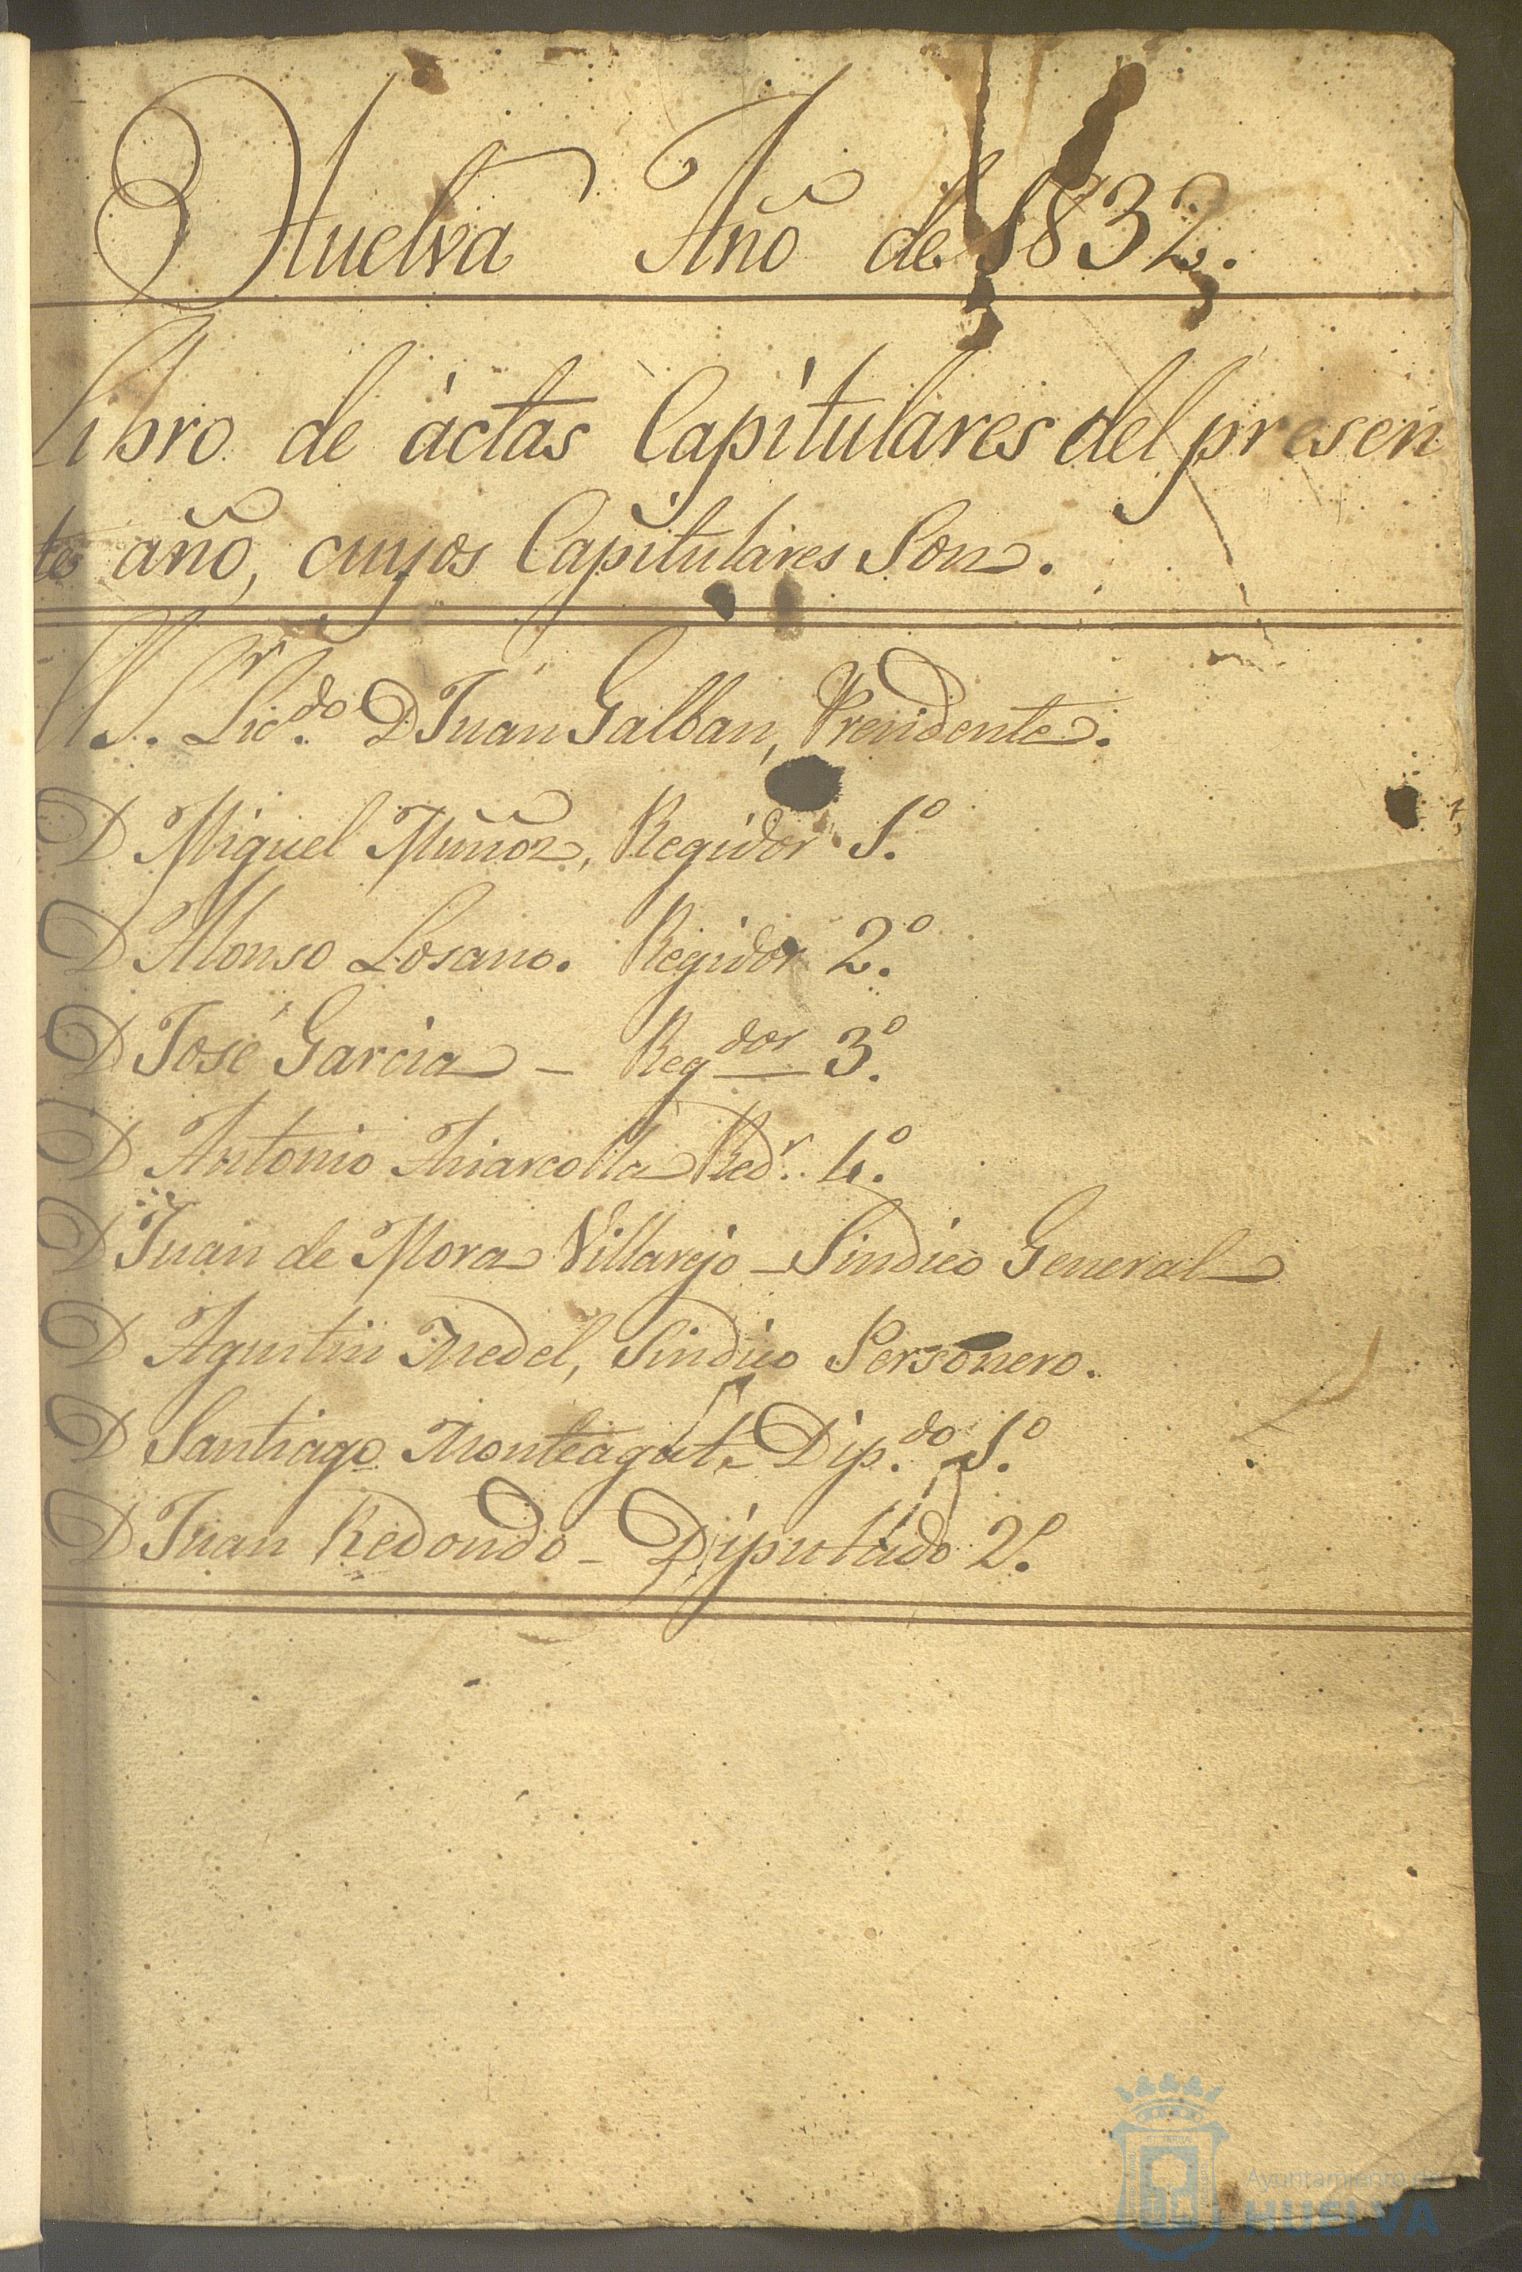 Huelva Año de 1832.
Libro de áctas Capitulares del presen
te año, cuyos Capitulares Son.
El S.r Lic.do D Juan Galban, Presidente.
D Miguel Muñoz, Regidor 1.º
D Alonso Losano. Regidor 2.º
D José Garcia – Reg.dor 3.º
D Antonio Red.r 4.º
D Juan de Mora Villarejo – Sindico General
D Agustin Medel, Sindico Personero.
D Santiago Monteagut – Dip.do 1.º
D Juan Redondo – Diputado 2.º
Ayuntamiento de
HUELVA